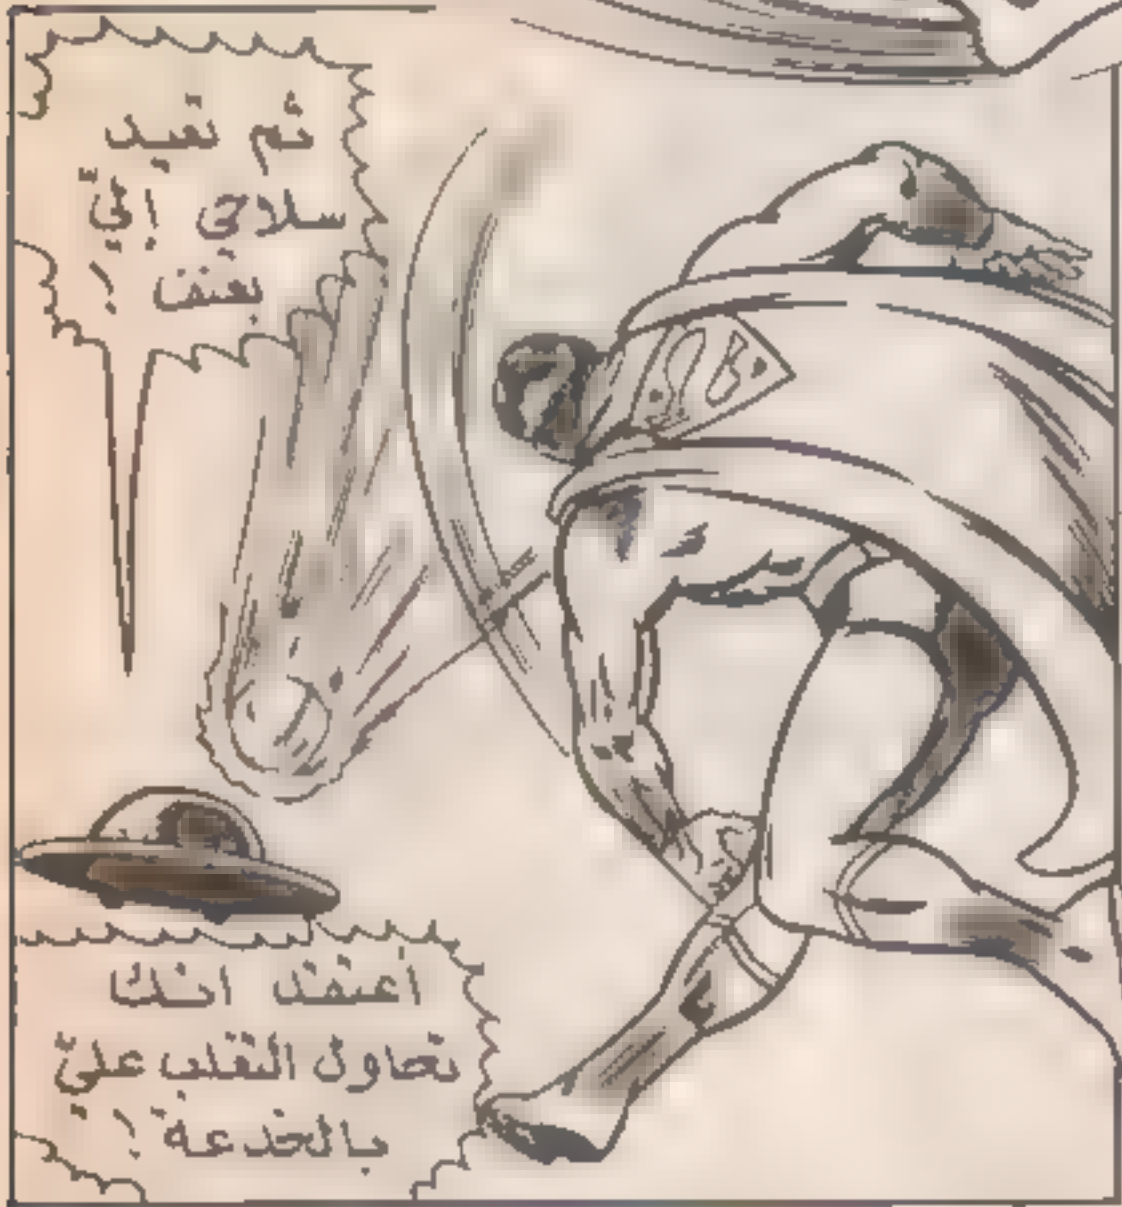 ثم تعيد
سلاحي إليّ
بعنف !
أعتقد انك
تحاول التغلب عليّ
بالخدعة !